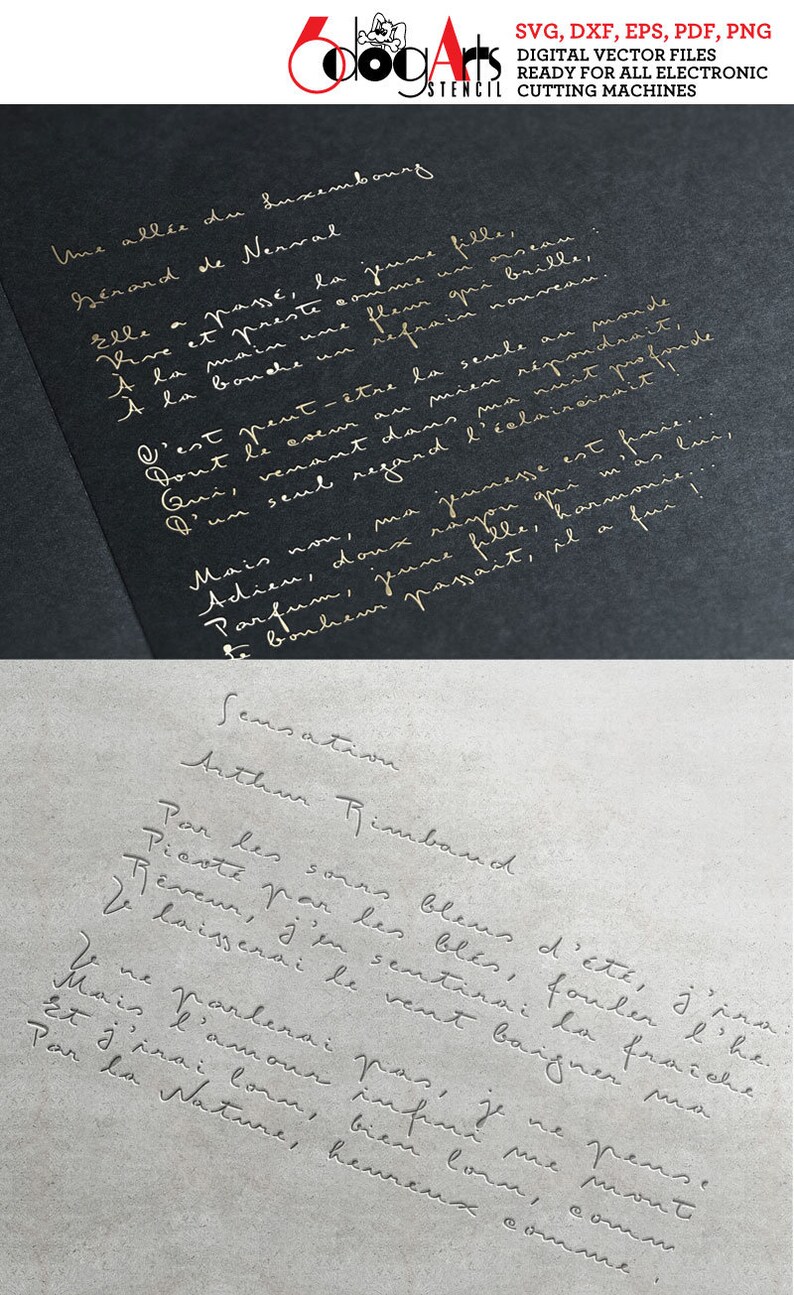 6dogArts
STENCIL
SVG, DXF, EPS, PDF, PNG
DIGITAL VECTOR FILES
READY FOR ALL ELECTRONIC
CUTTING MACHINES
Une allée du Luxembourg
Gérard de Nerval
Elle a passé, la jeune fille,
Vive et preste comme un oiseau :
À la main une fleur qui brille,
À la bouche un refrain nouveau.
C'est peut-être la seule au monde
Dont le coeur au mien répondrait,
Qui, venant dans ma nuit profonde
D'un seul regard l'éclaircirait !
Mais non, ma jeunesse est finie...
Adieu, doux rayon qui m'as lui,
Parfum, jeune fille, harmonie...
Le bonheur passait, il a fui !
Sensation
Arthur Rimbaud
Par les soirs bleus d'été, j'irai
Picoté par les blés, fouler l'he
Rêveur, j'en sentirai la fraîche
Je laisserai le vent baigner ma
Je ne parlerai pas, je ne pense
Mais l'amour infini me mont
Et j'irai loin, bien loin, comm
Par la Nature, heureux comme